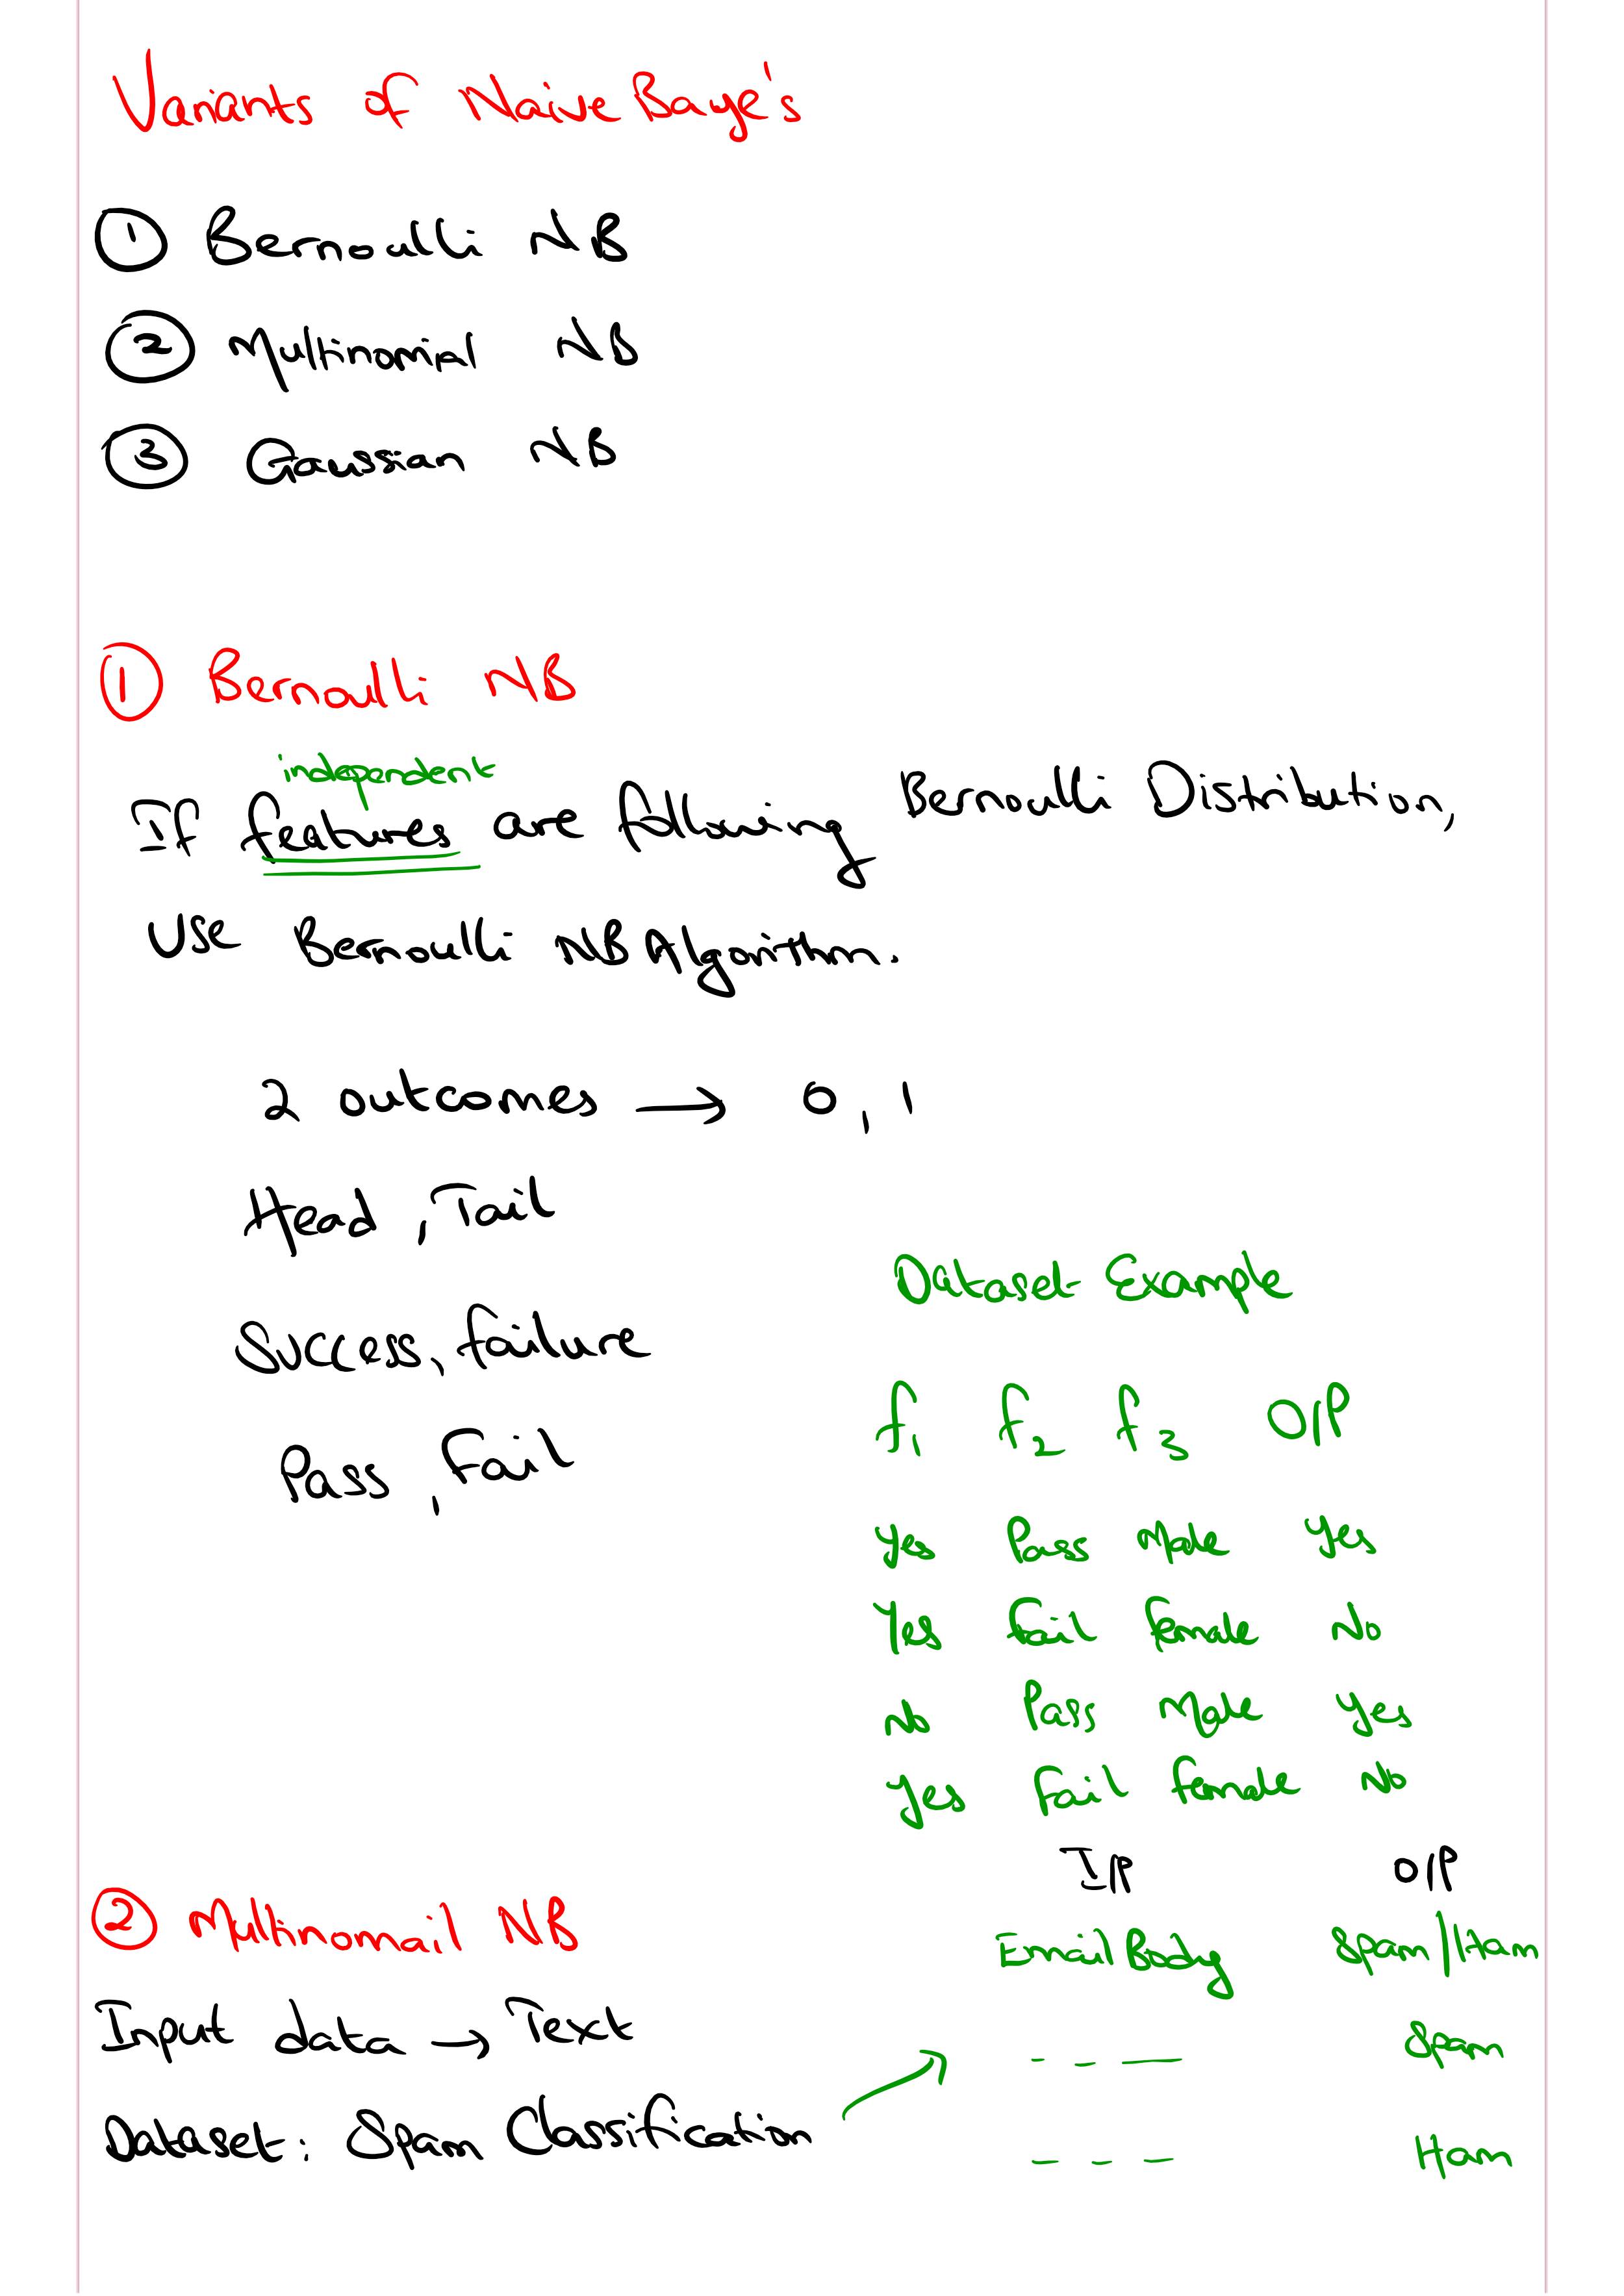 Variants of Naive Baye's
① Bernoulli NB
② Multinomial NB
③ Gaussian NB
① Bernoulli NB
independent
If features are following Bernoulli Distribution,
Use Bernoulli NB Algorithm.
2 outcomes → 0, 1
Head, Tail
Success, Failure
Pass, Fail
Dataset Example
f₁ f₂ f₃ O/P
Yes Pass Male Yes
Yes Fail Female No
No Pass Male Yes
Yes Fail Female No
② Multinomail NB
Input data → Text
Dataset: Spam Classification
I/P O/P
Email Body Spam/Ham
_ _ __ Spam
_ _ _ Ham